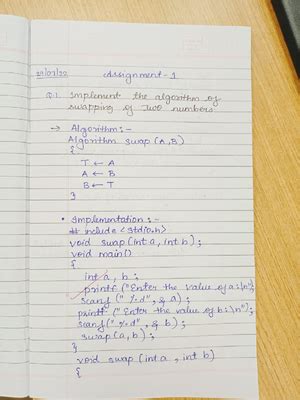 Assignment - 1
Q.1 Implement the algorithm of
swapping of two numbers.
→ Algorithm :-
Algorithm swap (A,B)
{
T ← A
A ← B
B ← T
}
• Implementation :-
# include <stdio.h>
void swap(int a, int b);
void main()
{
int a, b;
printf("Enter the value of a:\n");
scanf("%d", &a);
printf("Enter the value of b:\n");
scanf("%d", &b);
swap(a,b);
}
void swap (int a, int b)
{